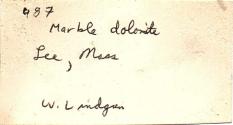 487
Marble dolomite
Lee, Mass
W. Lindgren